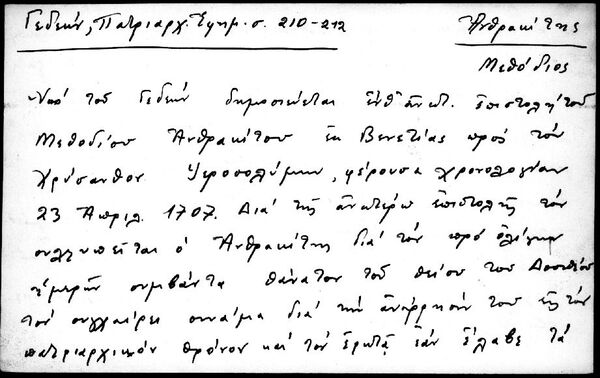 Γεδεών, Πατριαρχ. Εφημ. σ. 210-212
Ἀνθρακίτης
Μεθόδιος
Ὑπό τοῦ Γεδεών δημοσιεύεται ἐνθ' ἀνωτ. ἐπιστολή τοῦ
Μεθοδίου Ἀνθρακίτου ἐκ Βενετίας πρός τόν
Χρύσανθον Ἱεροσολύμων, φέρουσα χρονολογίαν
23 Ἀπριλ. 1707. Διά τῆς ἀνωτέρω ἐπιστολῆς τόν
συλλυπεῖται ὁ Ἀνθρακίτης διά τόν πρό ὀλίγων
ἡμερῶν συμβάντα θάνατον τοῦ θείου του Δοσιθέου
τόν συγχαίρει συνάμα διά τήν ἀνάρρησίν του εἰς τόν
πατριαρχικόν θρόνον καί τόν ἐρωτᾷ ἐάν ἔλαβε τά